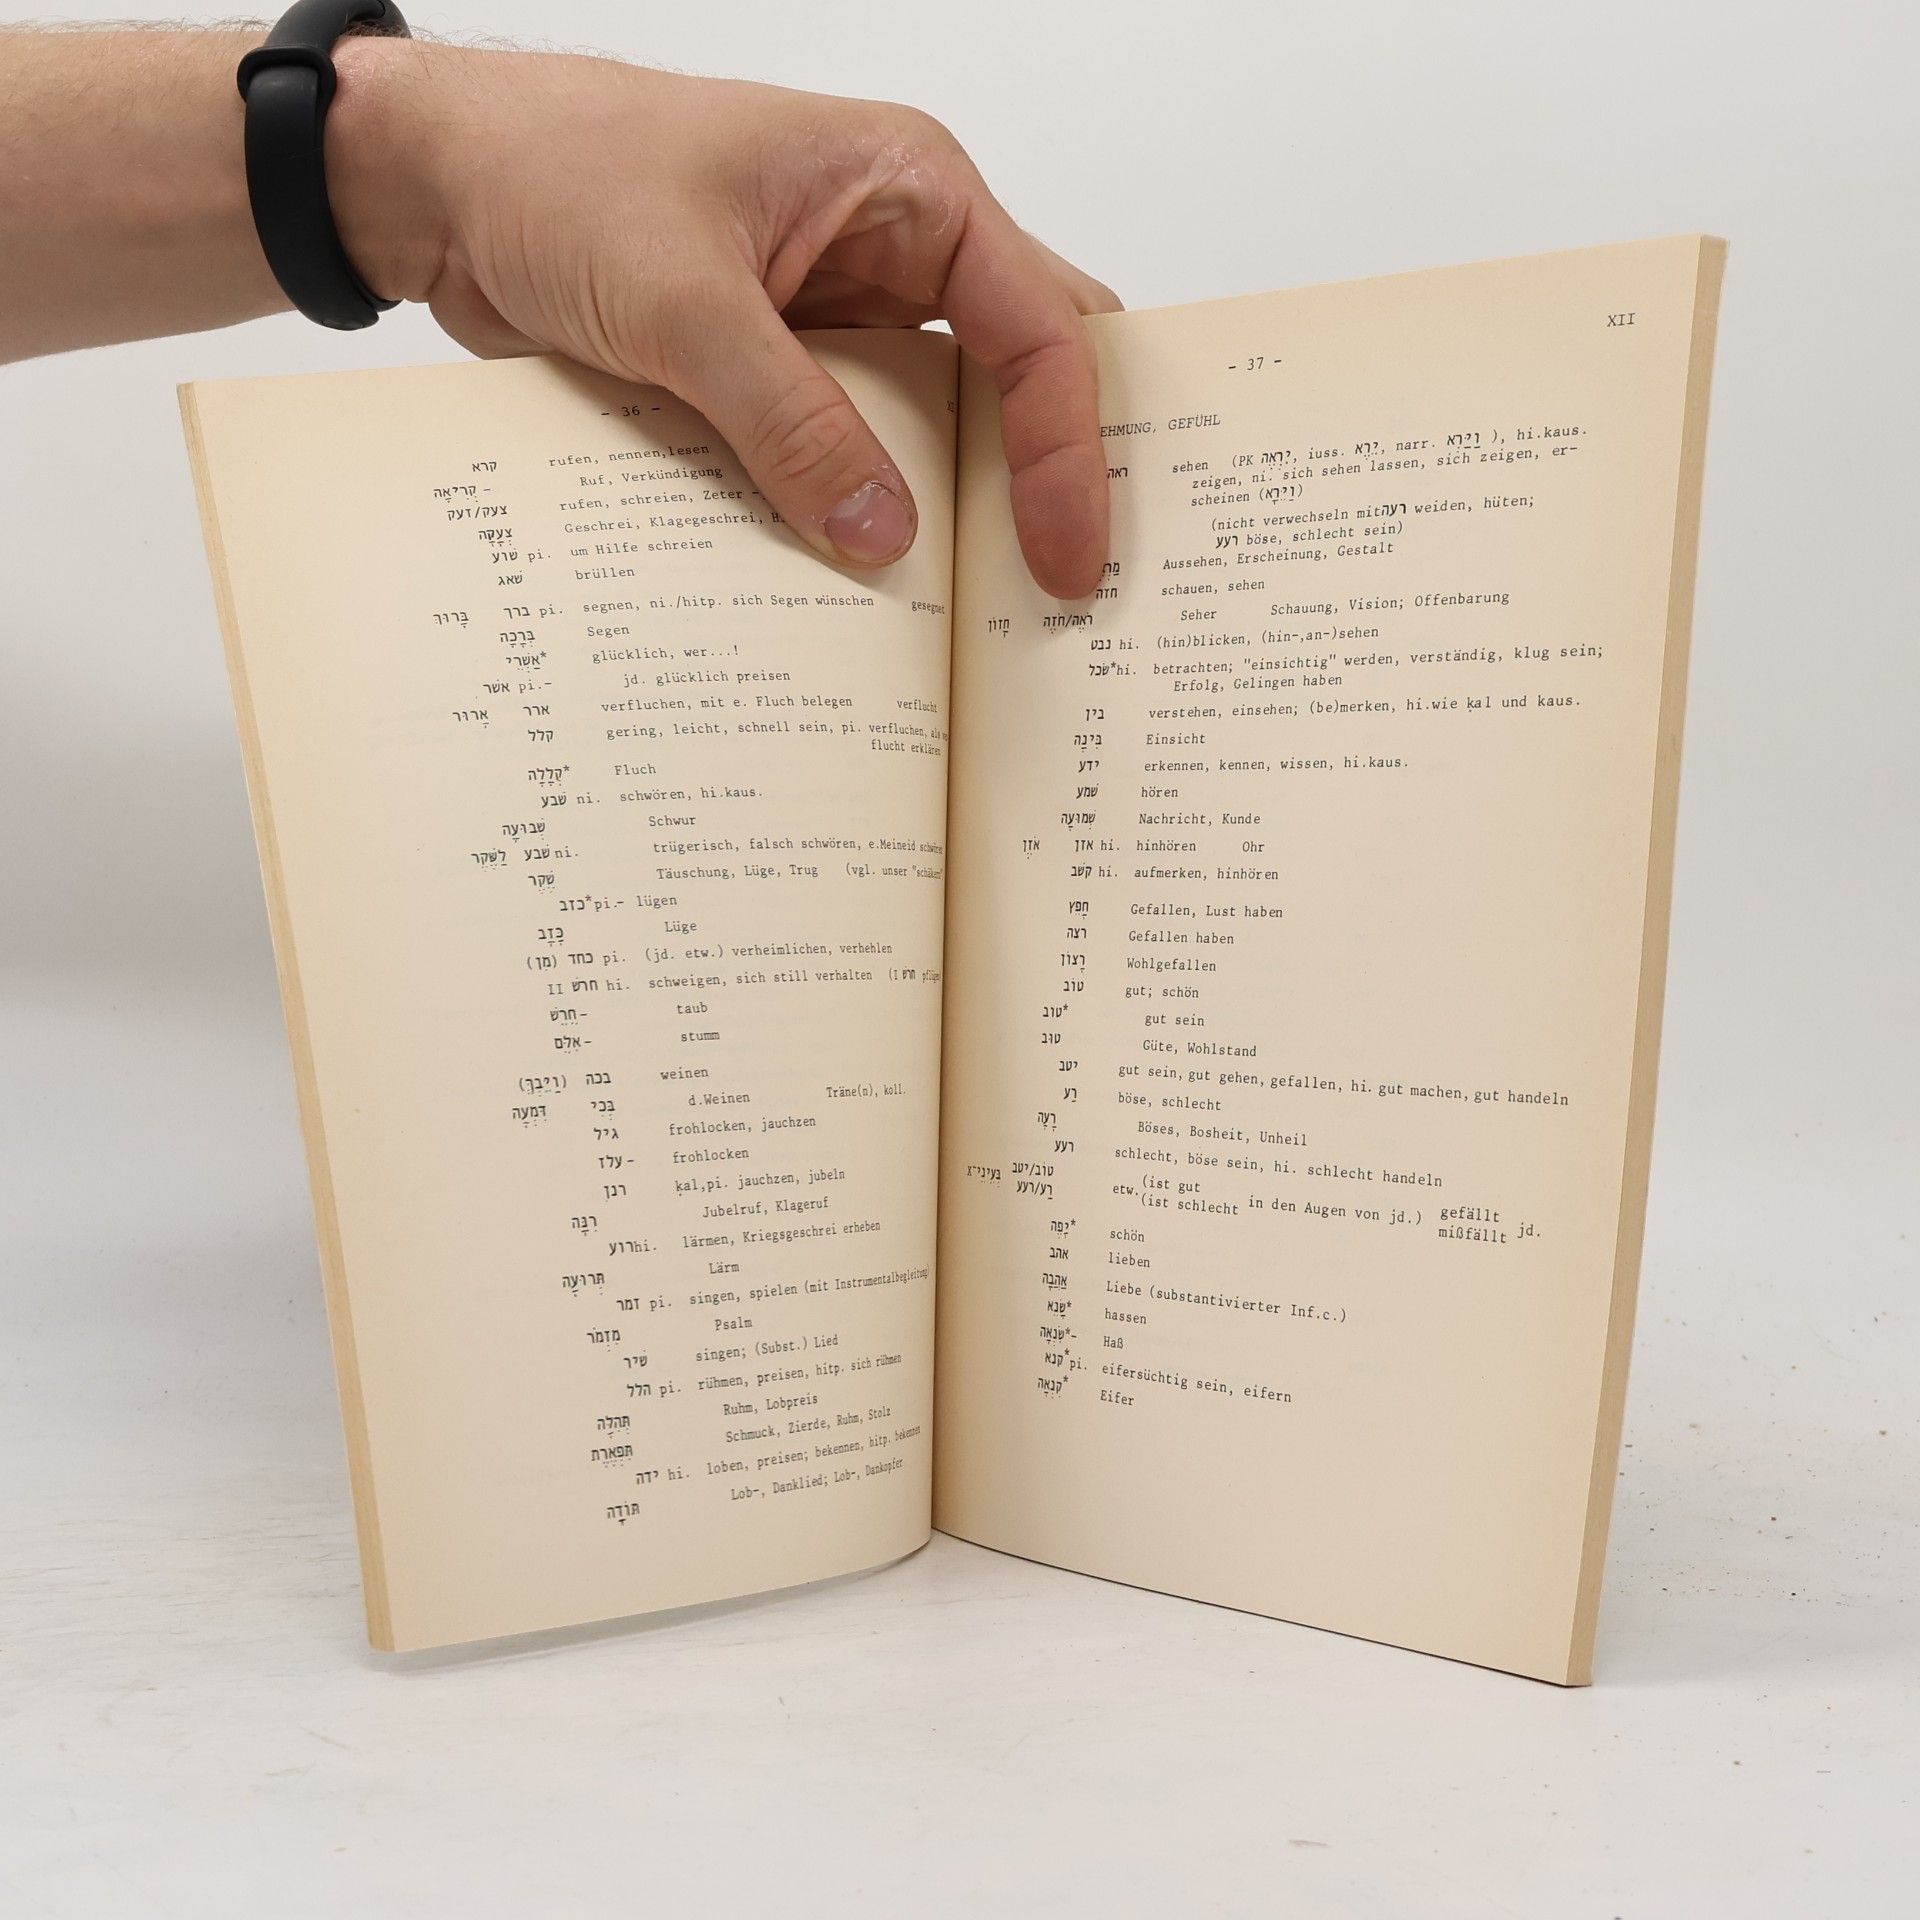 - 36 -
קרא rufen, nennen,lesen
קְרִיאָה – Ruf, Verkündigung
צעק/זעק rufen, schreien, Zeter -
צְעָקָה Geschrei, Klagegeschrei,
שׁוע pi. um Hilfe schreien
שׁאג brüllen
בָּרוּךְ ברך pi. segnen, ni./hitp. sich Segen wünschen gesegnet
בְּרָכָה Segen
אַשְׁרֵי* glücklich, wer...!
אשׁר pi.– jd. glücklich preisen
אָרוּר ארר verfluchen, mit e. Fluch belegen verflucht
קלל gering, leicht, schnell sein, pi. verfluchen, als ver
flucht erklären
קְלָלָה* Fluch
שׁבע ni. schwören, hi.kaus.
שְׁבוּעָה Schwur
לַשֶּׁקֶר שׁבע ni. trügerisch, falsch schwören, e.Meineid schwören
שֶׁקֶר Täuschung, Lüge, Trug (vgl. unser "schäkern"
כזב*pi.– lügen
כָּזָב Lüge
(מִן) כחד pi. (jd. etw.) verheimlichen, verhehlen
II חרשׁ hi. schweigen, sich still verhalten (I חרשׁ pflügen
חֵרֵשׁ– taub
אִלֵּם– stumm
(וַיֵּבְךְּ) בכה weinen
דִּמְעָה בְּכִי d.Weinen Träne(n), koll.
גיל frohlocken, jauchzen
עלז– frohlocken
רנן ḳal,pi. jauchzen, jubeln
רִנָּה Jubelruf, Klageruf
רוע hi. lärmen, Kriegsgeschrei erheben
תְּרוּעָה Lärm
זמר pi. singen, spielen (mit Instrumentalbegleitung)
מִזְמֹר Psalm
שׁיר singen; (Subst.) Lied
הלל pi. rühmen, preisen, hitp. sich rühmen
תְּהִלָּה Ruhm, Lobpreis
תִּפְאֶרֶת Schmuck, Zierde, Ruhm, Stolz
ידה hi. loben, preisen; bekennen, hitp. bekennen
תּוֹדָה Lob-, Danklied; Lob-, Dankopfer
XII
- 37 -
EHMUNG, GEFÜHL
ראה sehen (PK יִרְאֶה, iuss. יֵרֶא, narr. וַיַּרְא ), hi.kaus.
zeigen, ni. sich sehen lassen, sich zeigen, er-
scheinen (וַיֵּרָא)
(nicht verwechseln mit רעה weiden, hüten;
רעע böse, schlecht sein)
Aussehen, Erscheinung, Gestalt
חזה schauen, sehen
חָזוֹן רֹאֶה/חֹזֶה Seher Schauung, Vision; Offenbarung
נבט hi. (hin)blicken, (hin-,an-)sehen
שׂכל*hi. betrachten; "einsichtig" werden, verständig, klug sein;
Erfolg, Gelingen haben
בין verstehen, einsehen; (be)merken, hi.wie ḳal und kaus.
בִּינָה Einsicht
ידע erkennen, kennen, wissen, hi.kaus.
שׁמע hören
שְׁמוּעָה Nachricht, Kunde
אֹזֶן אזן hi. hinhören Ohr
קשׁב hi. aufmerken, hinhören
חָפֵץ Gefallen, Lust haben
רצה Gefallen haben
רָצוֹן Wohlgefallen
טוֹב gut; schön
טוב* gut sein
טוּב Güte, Wohlstand
יטב gut sein, gut gehen, gefallen, hi. gut machen, gut handeln
רַע böse, schlecht
רָעָה Böses, Bosheit, Unheil
רעע schlecht, böse sein, hi. schlecht handeln
בְּעֵינֵי־x טוֹב/יטב etw. (ist gut in den Augen von jd.) gefällt jd.
רַע/רעע (ist schlecht mißfällt
יָפֶה* schön
אהב lieben
אַהֲבָה Liebe (substantivierter Inf.c.)
שָׂנֵא* hassen
שִׂנְאָה*– Haß
קנא*pi. eifersüchtig sein, eifern
קִנְאָה* Eifer